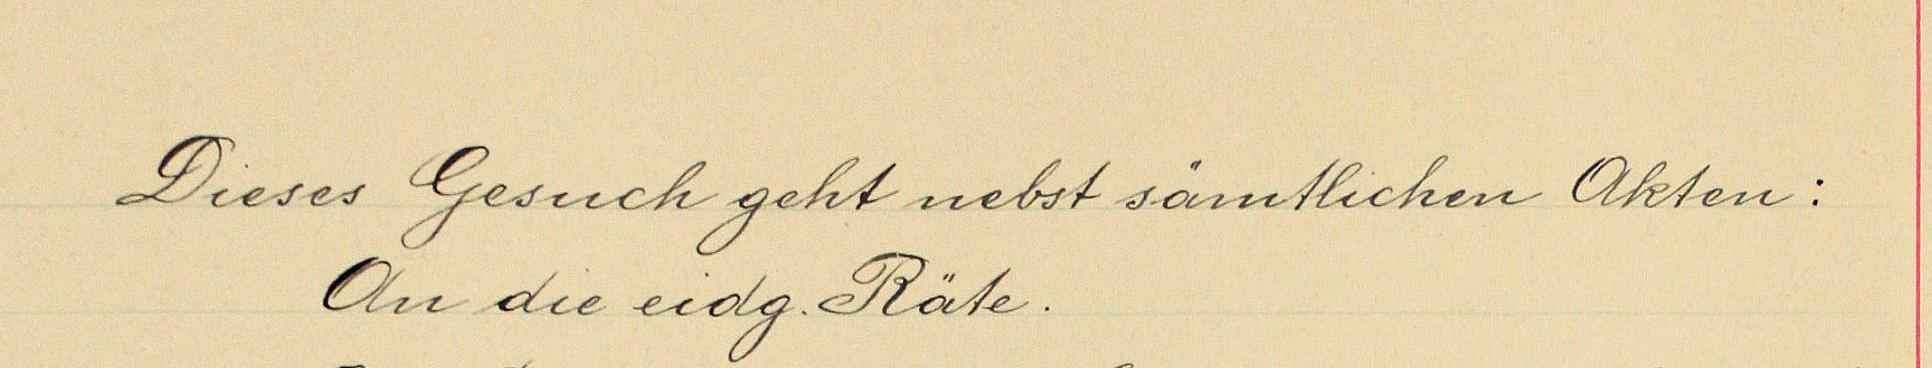 Dieses Gesuch geht nebst sämtlichen Akten:
An die eidg. Räte.